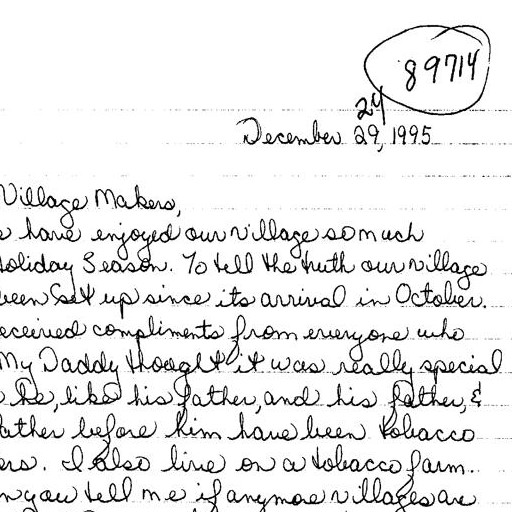 89714
24
December 29, 1995
Village Makers,
have enjoyed our village so much
Holiday Season. To tell the truth our village
been set up since its arrival in October.
received compliments from everyone who
My Daddy thought it was really special
he, like his father, and his father, &
father before him have been tobacco
ers. I also live on a tobacco farm.
you tell me if anymore villages are